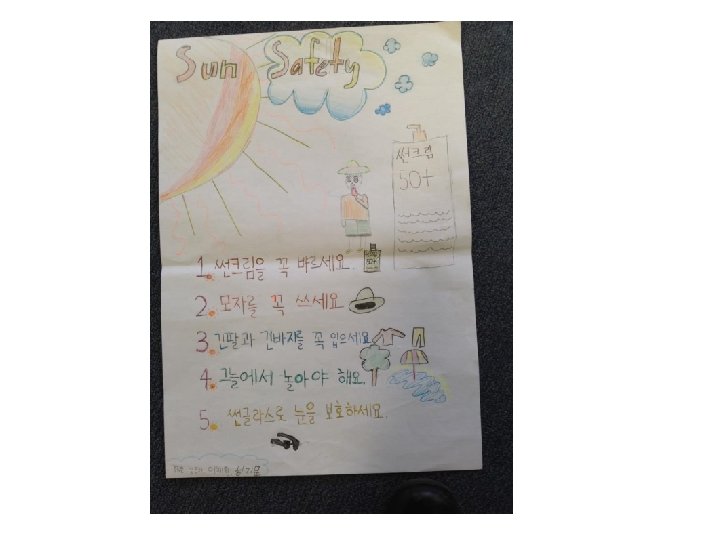 Sun Safety
썬크림
50+
1. 썬크림을 꼭 바르세요.
50+
2. 모자를 꼭 쓰세요
3. 긴팔과 긴바지를 꼭 입으세요.
4. 그늘에서 놀아야 해요.
5. 썬글라스로 눈을 보호하세요.